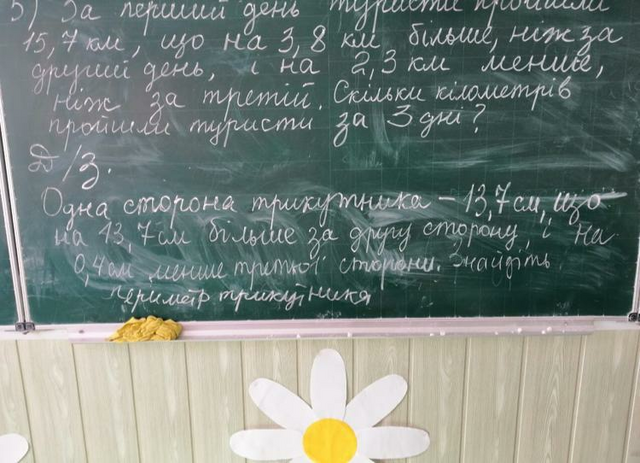 5) За перший день туристи пройшли
15,7 км, що на 3,8 км більше, ніж за
другий день, і на 2,3 км менше,
ніж за третій. Скільки кілометрів
пройшли туристи за 3 дні?
Д/З.
Одна сторона трикутника – 13,7 см, що
на 13,7 см більше за другу сторону, і на
0,4 см менше третьої сторони. Знайдіть
периметр трикутника